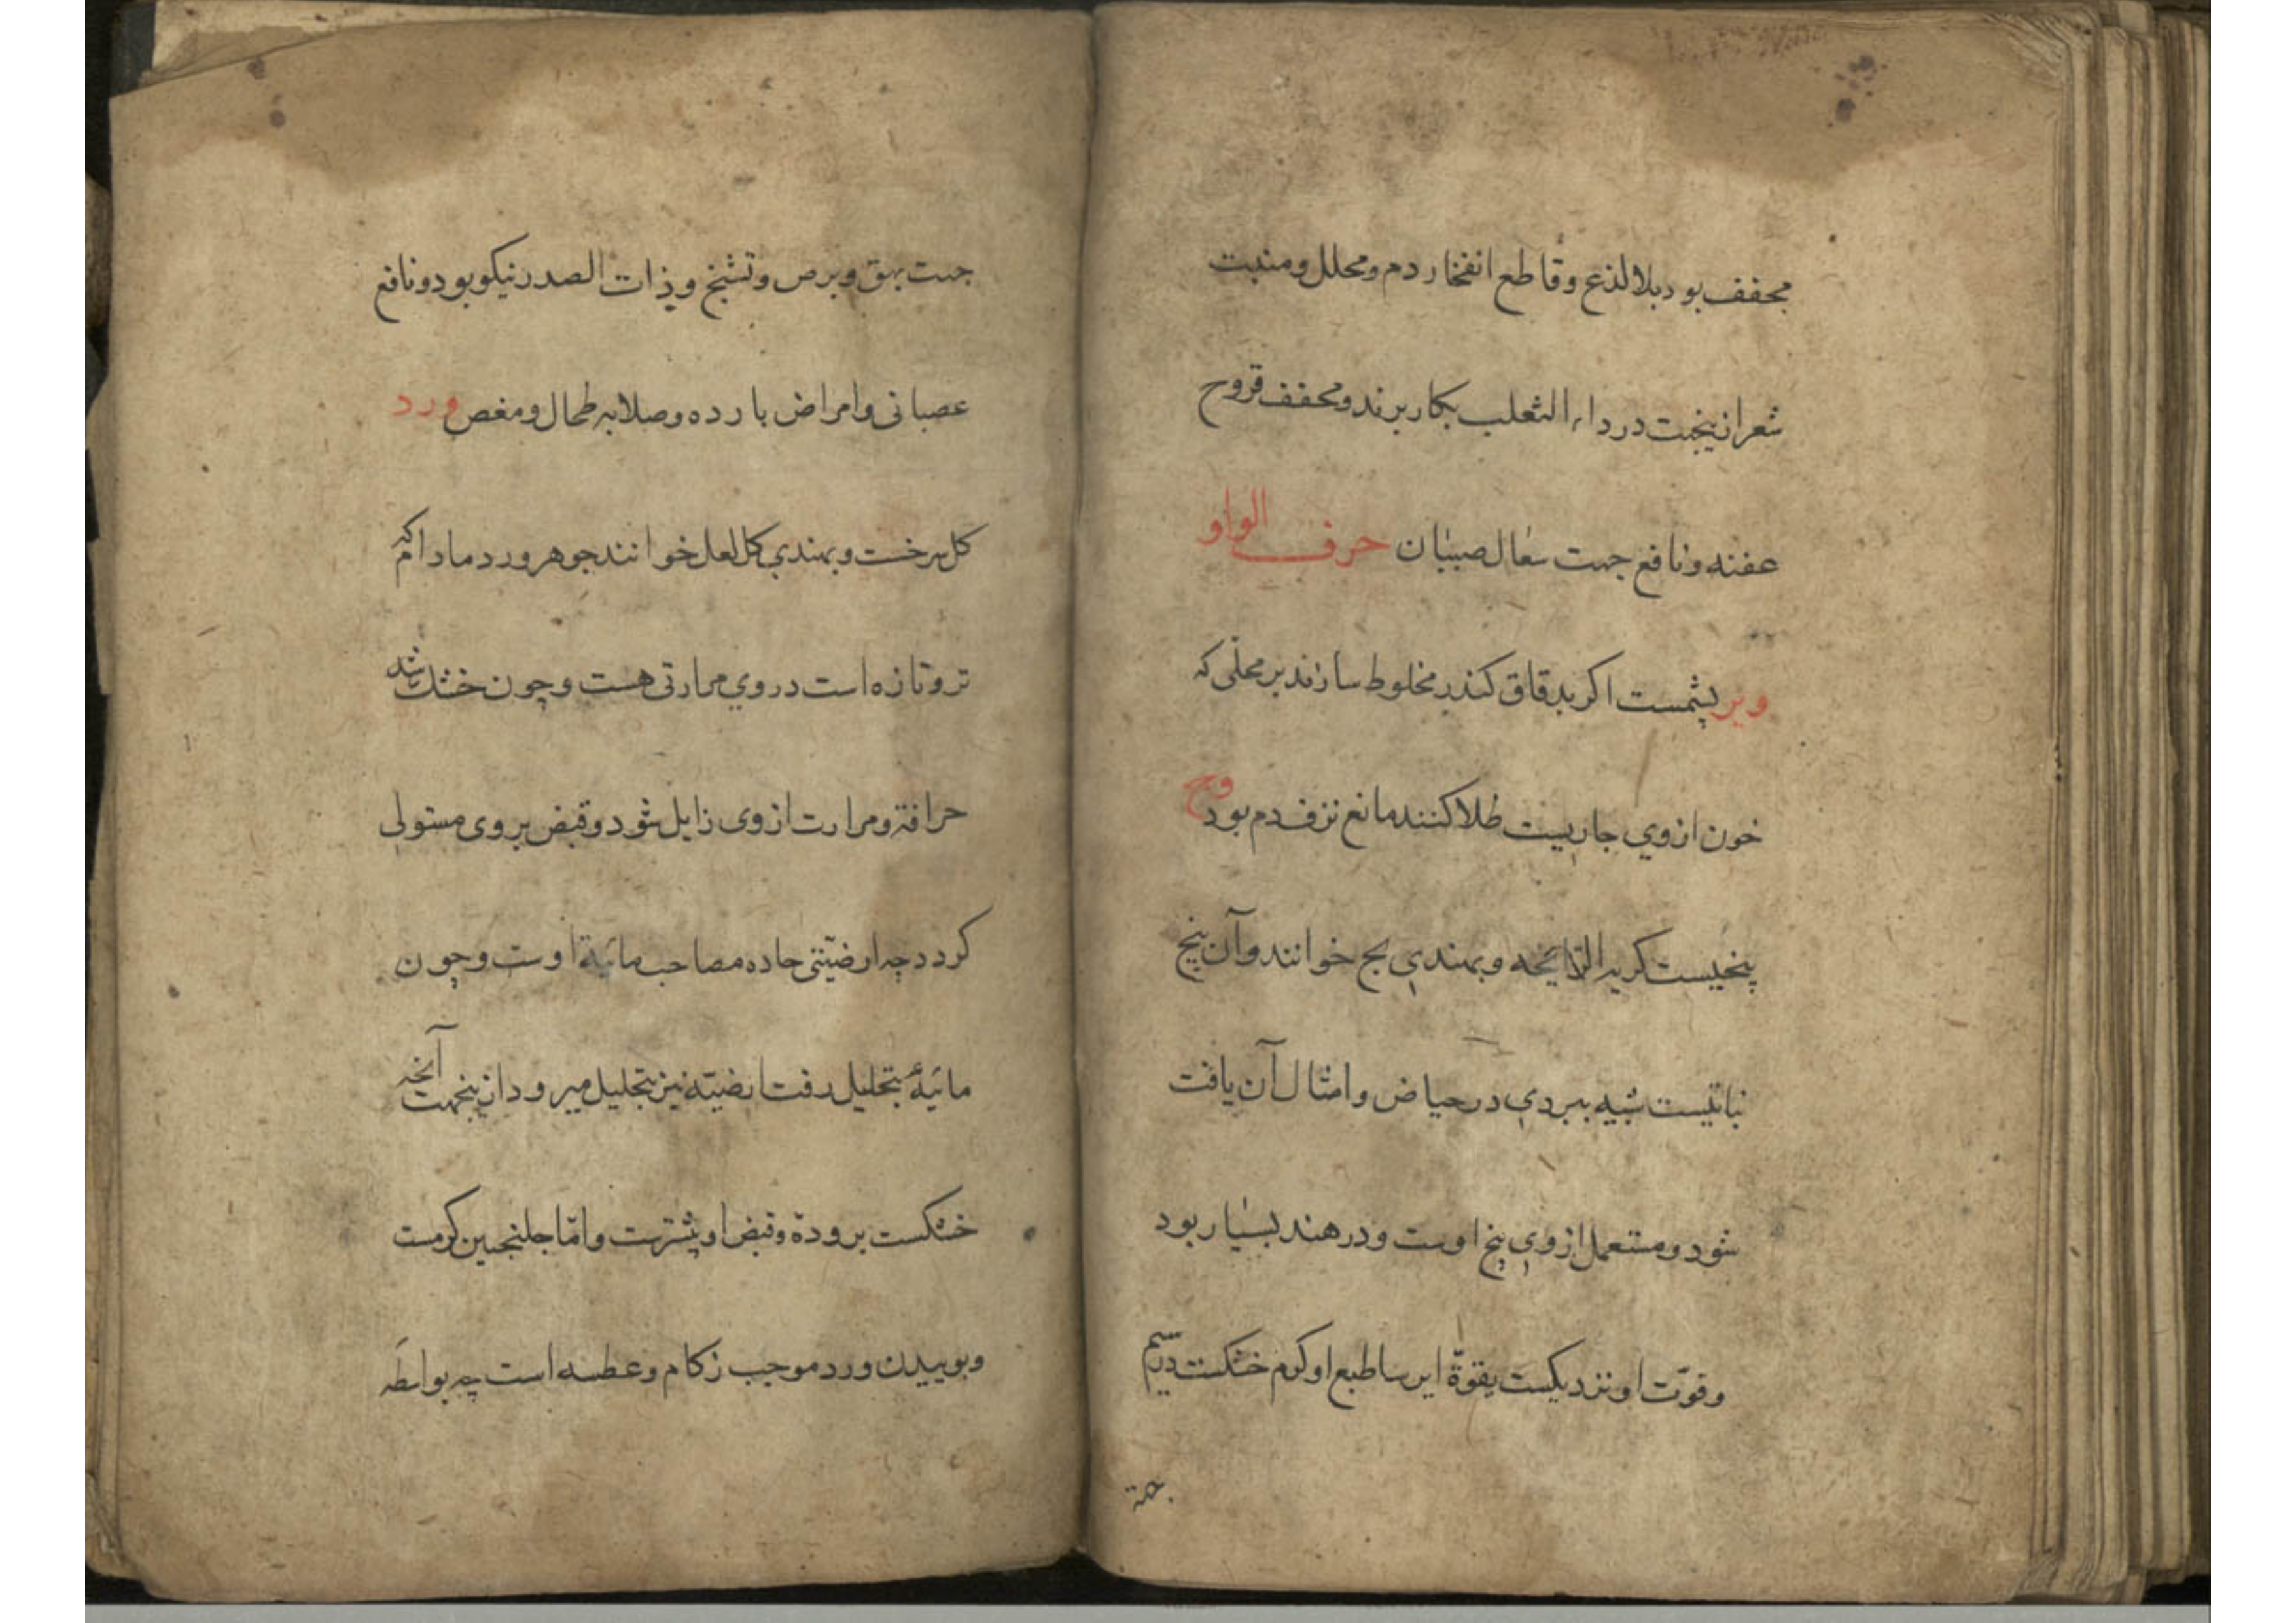 مجفف بود بلا لذع وقاطع انفجار دم ومحلل ومنبت
شعر ازینجهت در داء الثعلب بکار برند ومجفف قروح
عفنه ونافع جهت سعال صبیان حرف الواو
وبر پشمست اکر بدقاق کندر مخلوط سازند بر محلی که
خون ازوی جاریست طلا کنند مانع نزف دم بود وج
بیخیست کریه الرّایحه وبهندی بج خوانند وآن بیخ
نباتیست شبیه ببردی در حیاض وامثال آن یافت
شود ومستعمل ازوی بیخ اوست ودر هند بسیار بود
وقوّت او نزدیکست بقوّة ایرسا طبع او کرم خشکست در سیم
جهة
جهت بهق وبرص وتشنج وذات الصدر نیکو بود ونافع
عصبانی وامراض بارده وصلابه طحال ومغص ورد
کل سرخست وبهندی کل لعل خوانند جوهر ورد مادام که
تر وتازه است در وی مرارتی هست وچون خشک شد
حرافة ومرارت ازوی زایل شود وقبض بر وی مستولی
کردد چه ارضیّتی حاده مصاحب مائیة اوست وچون
مائیة بتحلیل رفت ارضیّه نیز بتحلیل میرود ازینجهت آنچه
خشکست برودة وقبض او بیشترست وامّا جلنجبین کرمست
وبوییدن ورد موجب زکام وعطسه است چه بواسطه